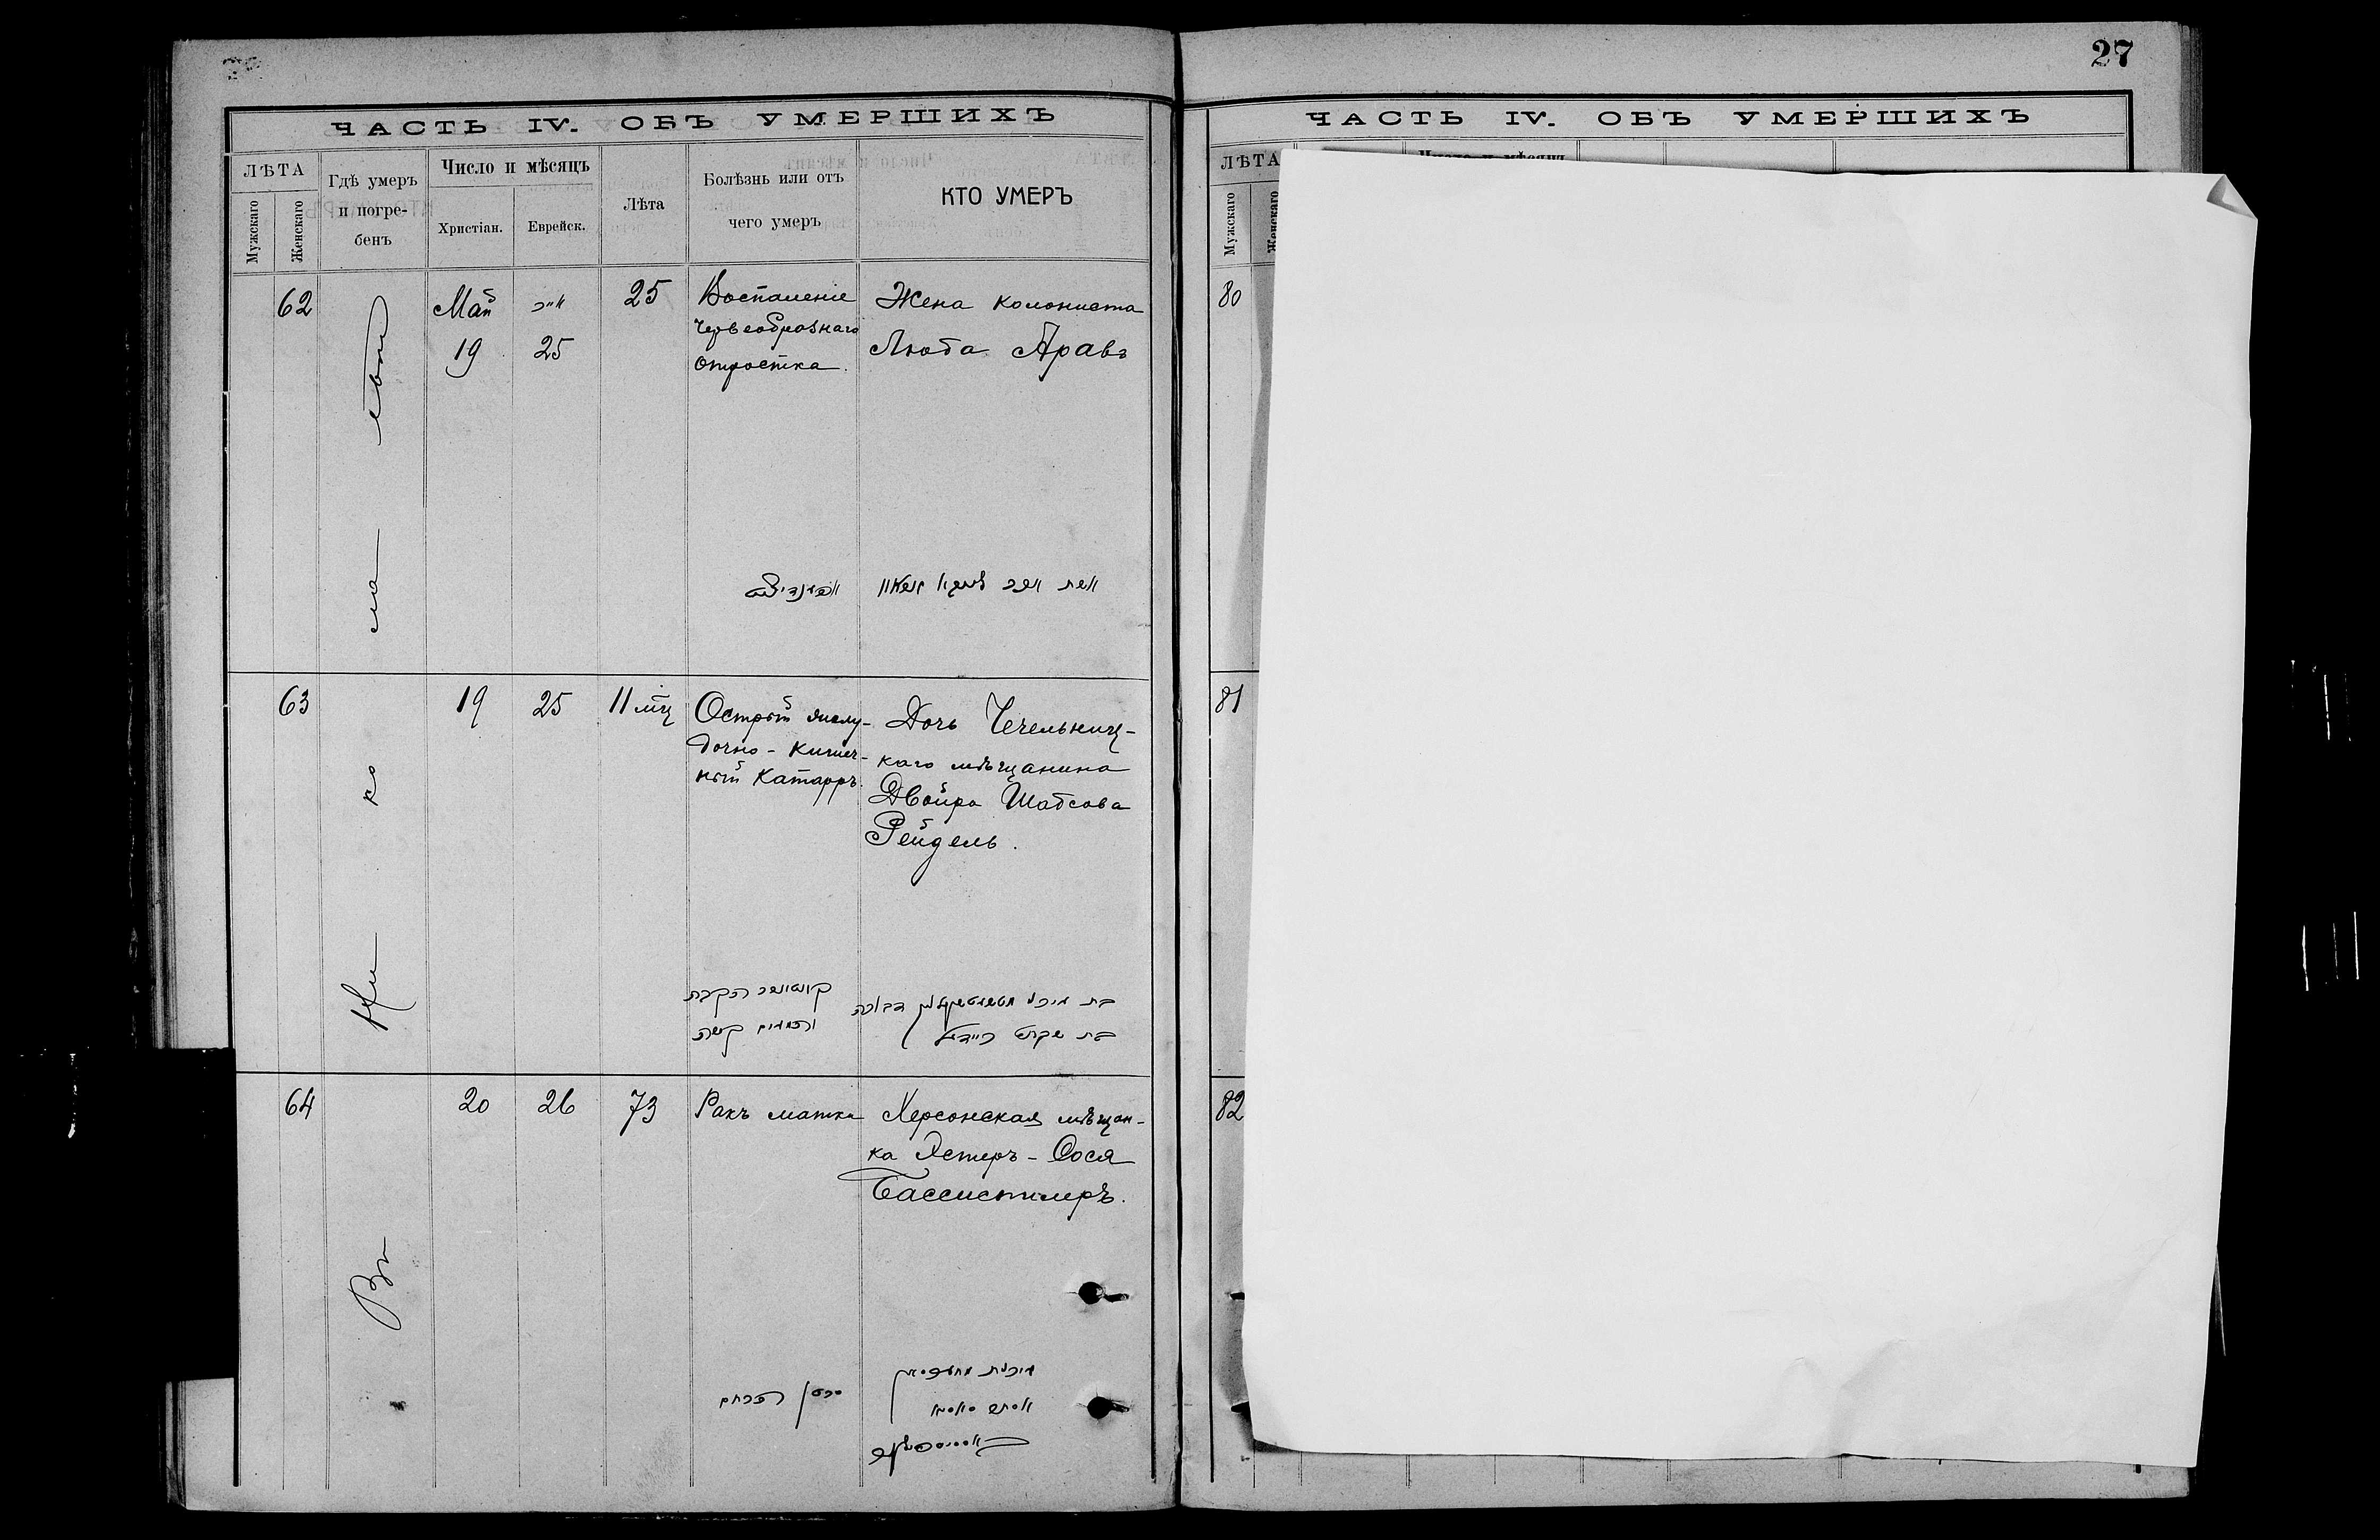 27
ЧАСТЬ IV. ОБЪ УМЕРШИХЪ
ЛѢТА
Мужскаго
Женскаго
Гдѣ умеръ
и погре-
бенъ
Число и мѣсяцъ
Христіан.
Еврейск.
Лѣта
Болѣзнь или отъ
чего умеръ
КТО УМЕРЪ
62
Май
19
25
25
Воспаленіе
Червеобразнаго
отростка.
Жена колониста
Люба Аравъ
63
19
25
11 мц
Острый желу-
дочно-кишеч-
ный катарръ.
Дочь Чечельниц-
каго мѣщанина
Двойра Шабсова
Рейдель.
64
20
26
73
Ракъ матки
Херсонская мѣщан-
ка Эстеръ-Сося
Бассистлеръ.
סרטן הרחם
Въ Ни ко ла евѣ
ЧАСТЬ IV. ОБЪ УМЕРШИХЪ
ЛѢТА
Мужскаго
Женскаго
80
81
82